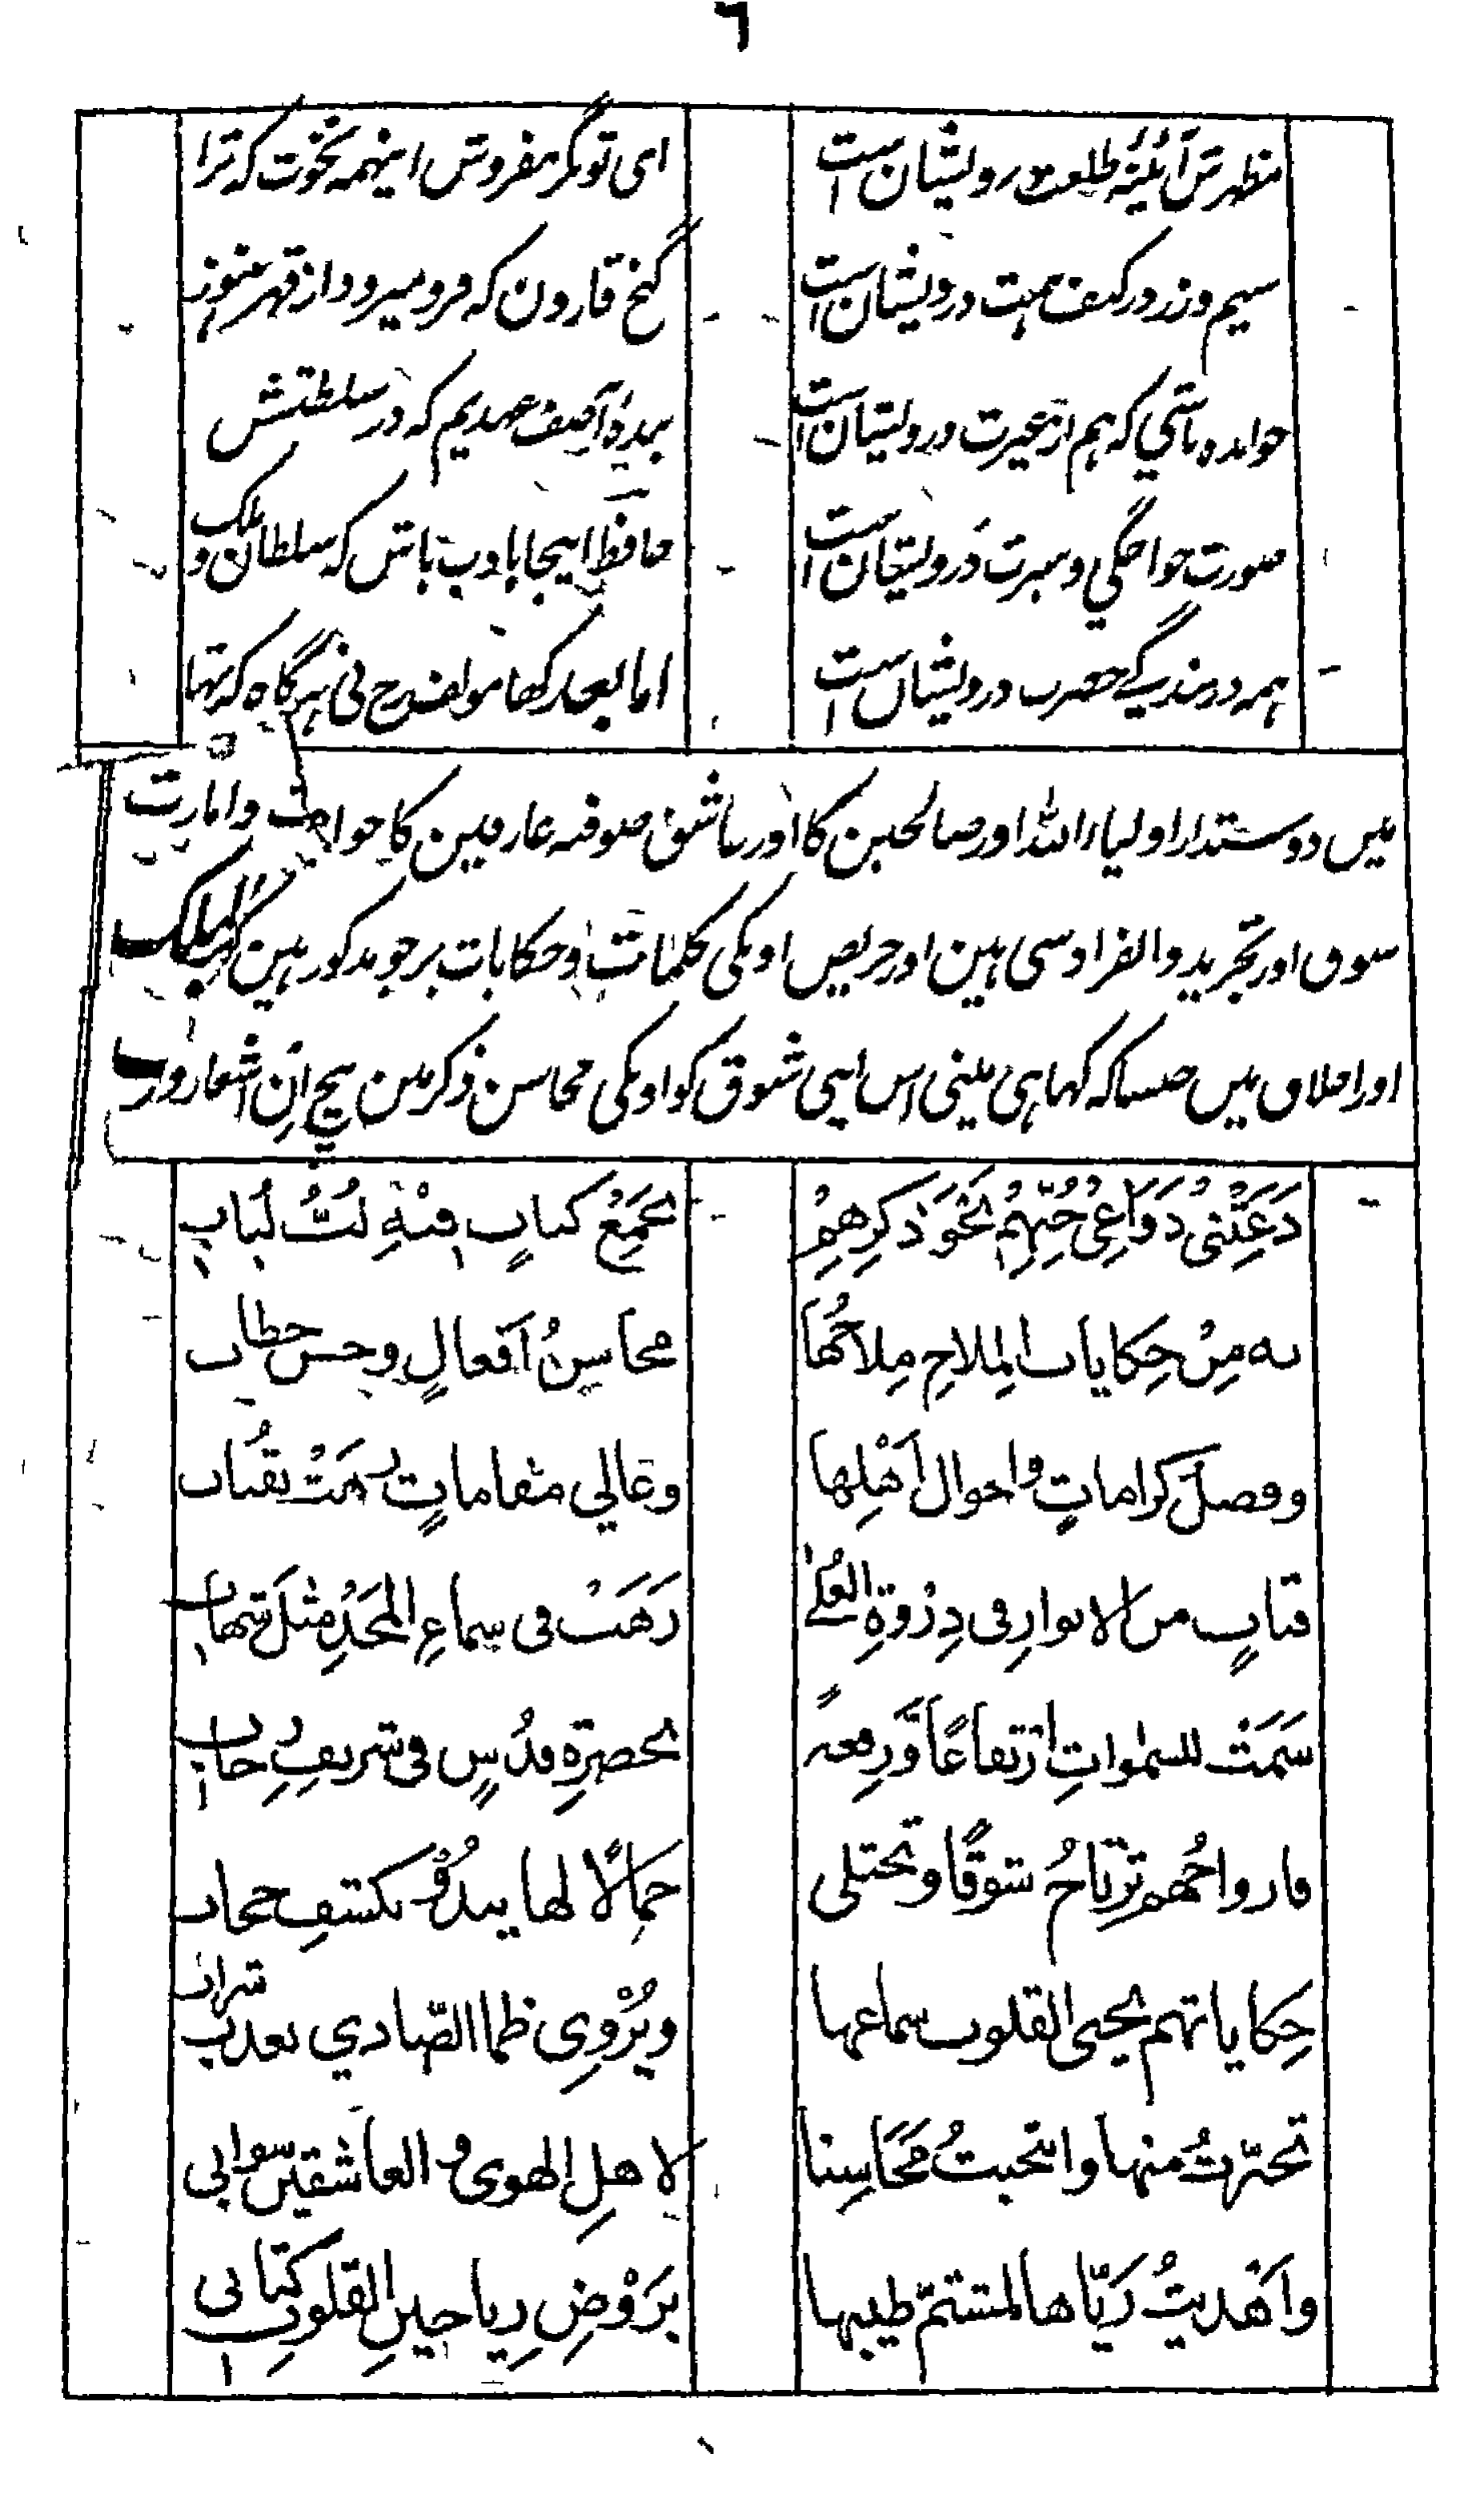 ٦
مظهرش آئینهٔ طلعت درویشان است
ای توانگر مفروش اینهمه نخوت که ترا
سیم و زر در کنف همت درویشان است
گنج قارون که فرو میرود از قهر هنوز
خوانده باشی که هم از غیرت درویشان است
بندهٔ آصف عهدیم که در سلطنتش
صورت خواجگی و سیرت درویشان است
حافظ اینجا بادب باش که سلطان و ملک
همه در بندگی حضرت درویشان است
اما بعد کها مولف رح نی هرگاه که تها
میں دوستدار اولیاء الله اور صالحین کا اور عاشق صوفیه عارفین کا جو و امارت
شوق اور تجرید و انفراد سی ہین اور حریص اونکی کلمات و حکایات پر جو مذکور ہین
اور اخلاق میں جیسا که کہا ہی مینی اس اپنی شوق کو اونکی محاسن ذکر مین بیچ ان اشعار
دَعَتْنی دَوَاعِی حُبِّهِمُ نَحْوَ ذِکرِهِمْ
بجَمْعِ کتابٍ فیْهِ لُبُّ لُبَابِ
به مِنْ حِکایات الِملاحِ مِلاحُها
محاسِنُ اَفعالٍ وحسن خطاب
وفضلِ کراماتٍ واحوال اَهْلِها
وعالی مقاماتٍ سمَتْ بقُباب
قبابٍ من الانوارِ فی ذِرْوَةِ العُلی
زَهَتْ فی سماءِ المَجْدِ مثلَ شهاب
سَمَتْ للسمٰواتِ ارتفاعًا وَّرِفعةً
بحضرةِ قدُسٍ فی شریفِ جناب
فارواحُهم ترتاحُ شوقًا وتجتلی
جمالًا لها یبدُوْ بکشفِ حجاب
حِکایاتهم یحیی القلوب سماعها
ویُرْوِی ظما الصّادی بعذب شراب
تخیّرتُ منها وانتخبتُ مَحَاسِنا
لاهلِ الهوی والعاشقین سوابی
واَهْدیتُ رَیّاها لمستشمّ طیبها
برَوْضِ رِیاحینِ القلوبِ کتابی